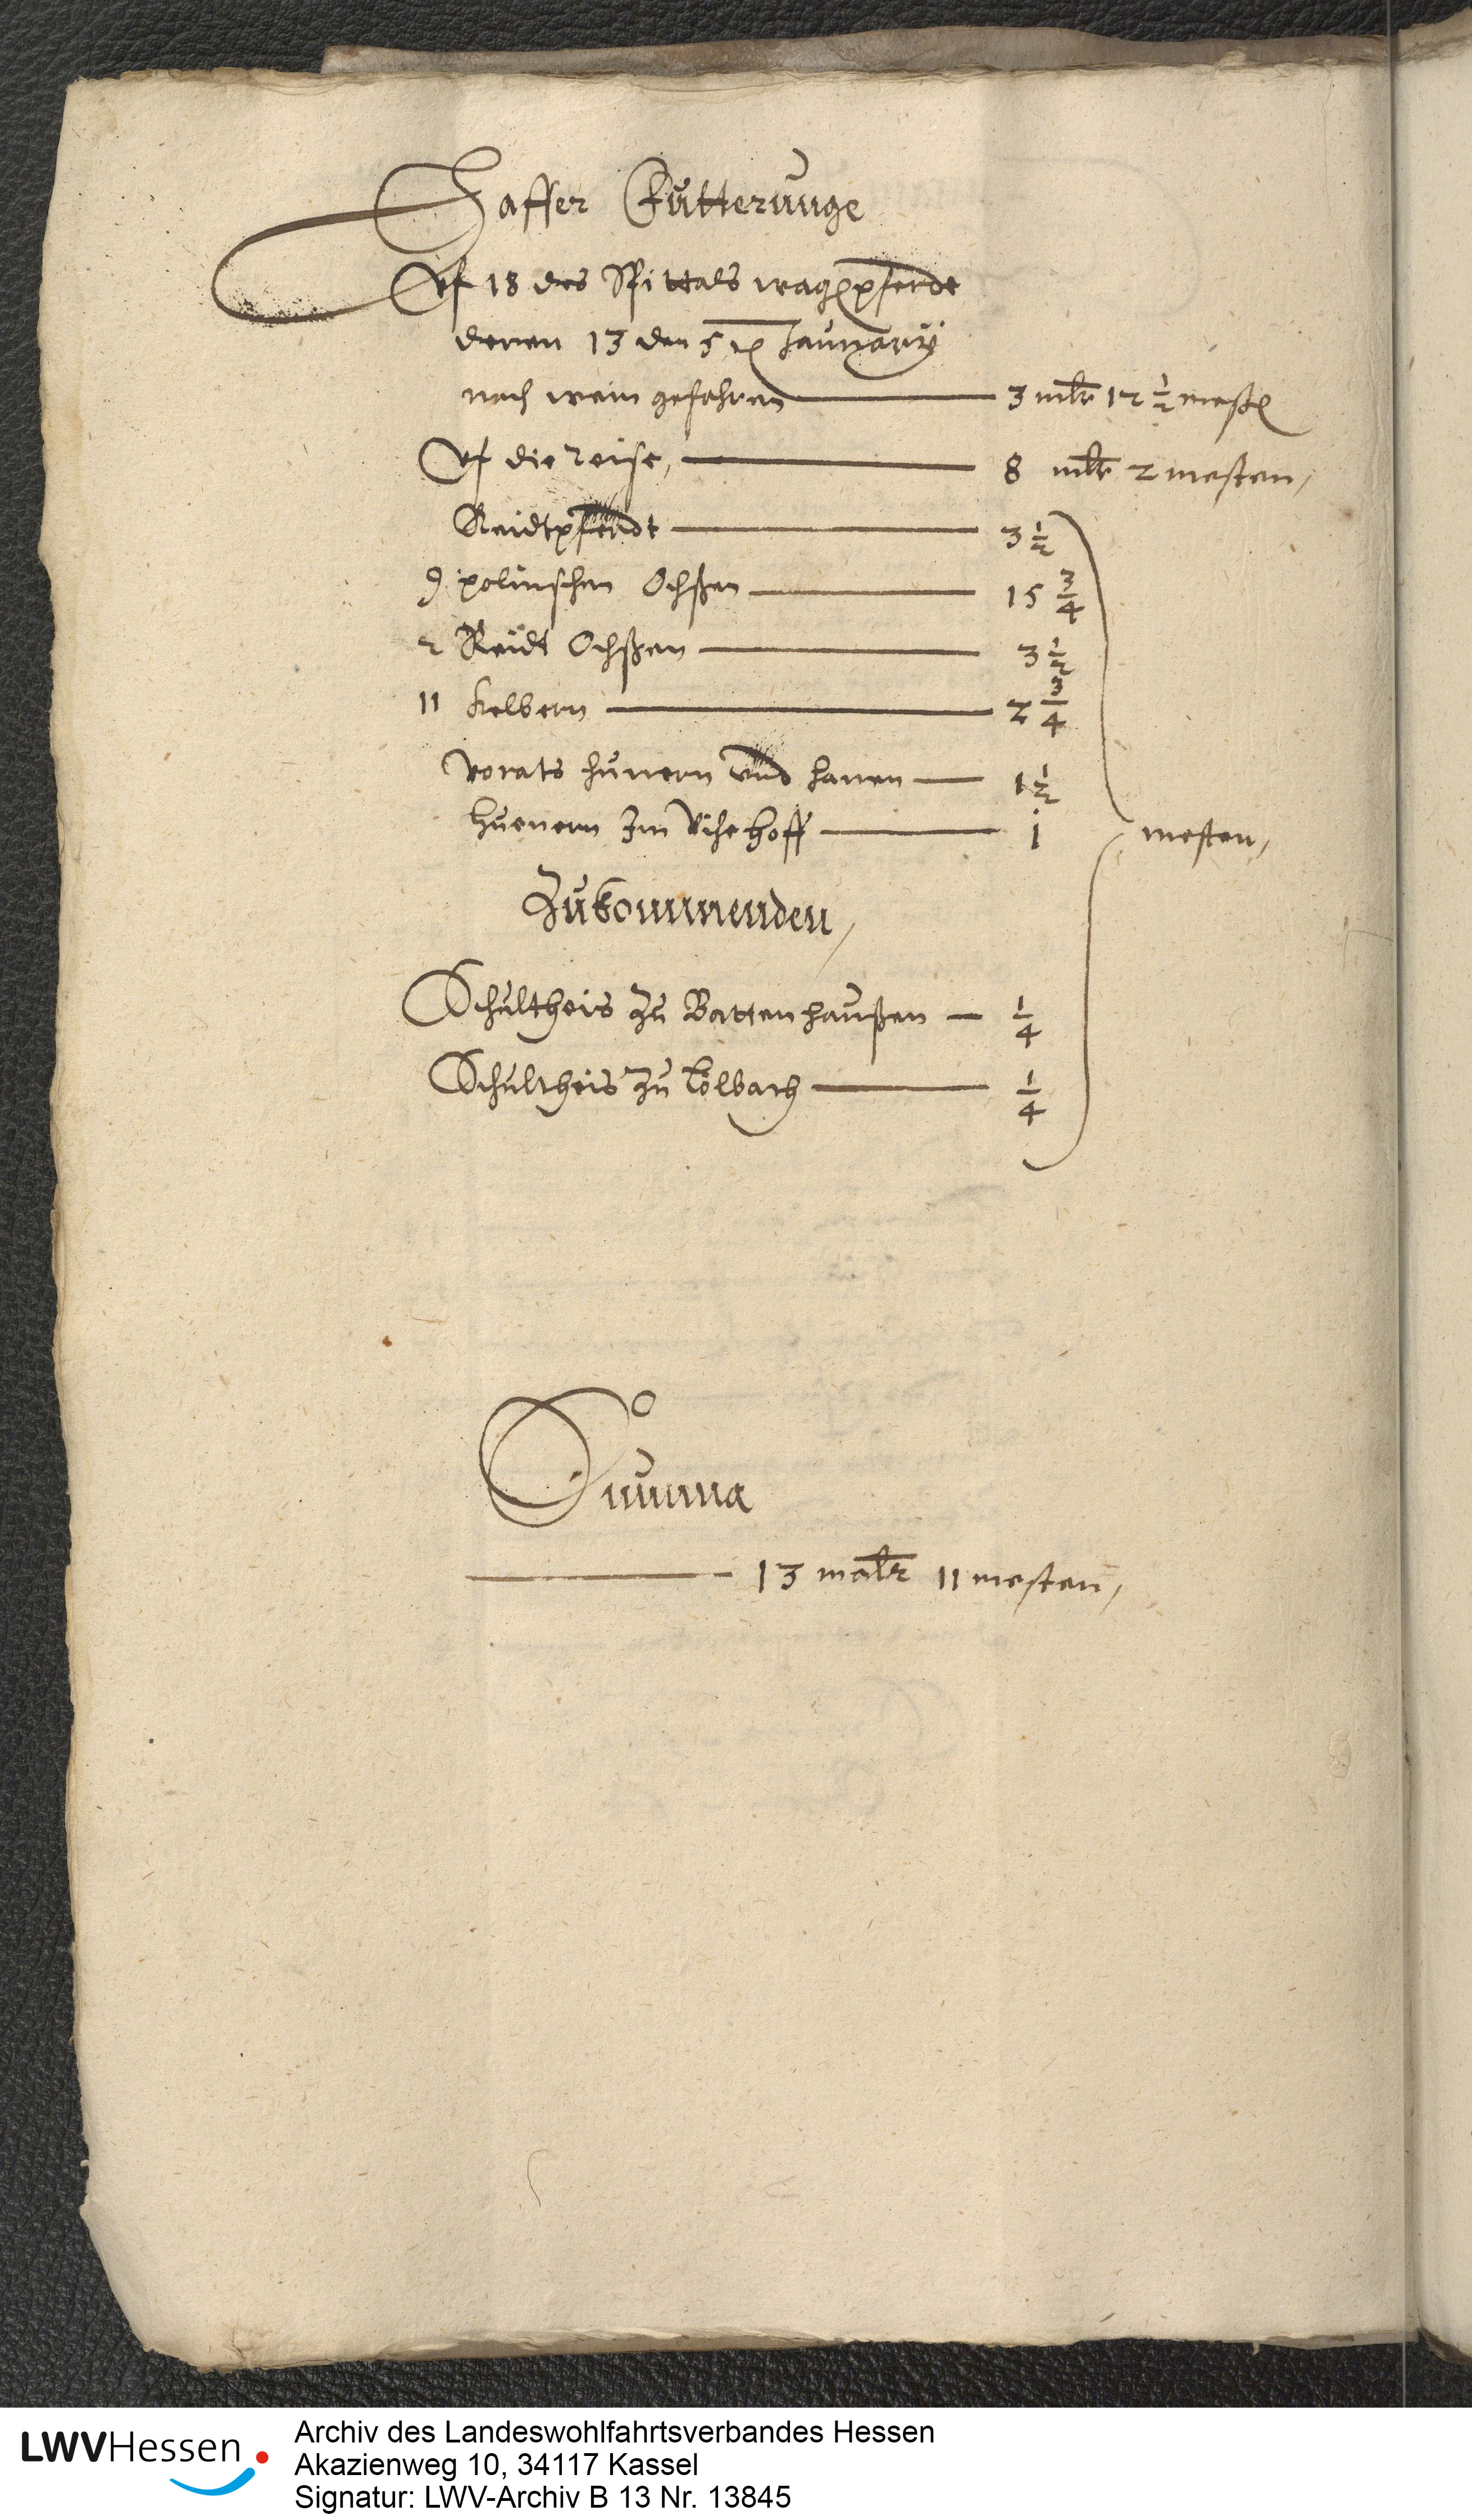 Haffer Futterunge
Vf 18 des Spittals wagenpferde
deren 13 den 5ten January
nach wein gefahren — 3 mltr 12 1/2 mesten
Vf die reise, — 8 mltr 2 mesten,
Reidtpferdt — 3 1/2
9 polnischen Ochßen — 15 3/4
2 Reidt Ochßen — 3 1/2
11 Kelbern — 2 3/4
Vorats hunern vnd hanen — 1 1/2
huenern Im Viehehoff — 1 mesten,
Zukommenden,
Schultheis zu Battenhaußen — 1/4
Schultheis zu Lölbach — 1/4
Summa
— 13 maltr 11 mesten,
LWVHessen
Archiv des Landeswohlfahrtsverbandes Hessen
Akazienweg 10, 34117 Kassel
Signatur: LWV-Archiv B 13 Nr. 13845